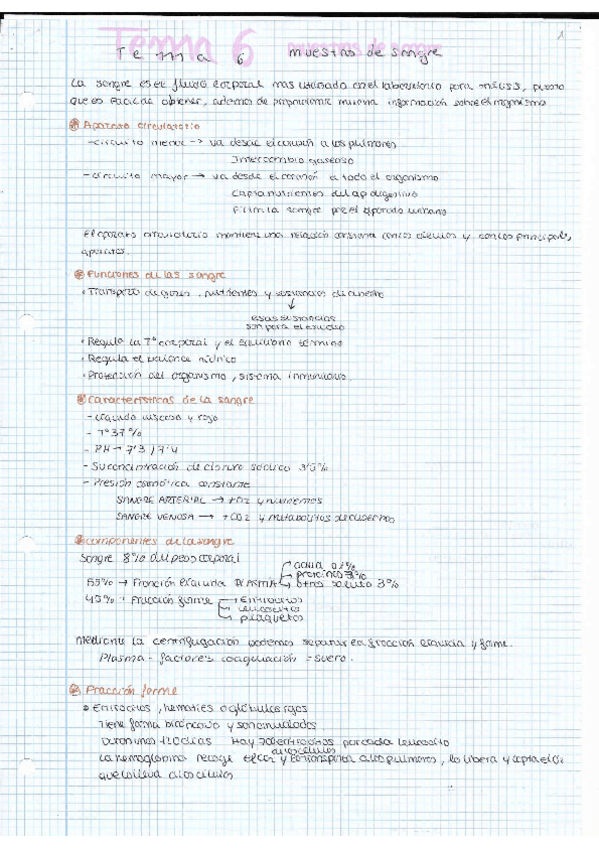 1
Tema 6 muestras de sangre
La sangre es el fluido corporal mas utilizado en el laboratorio para análisis, puesto
que es facil de obtener, ademas de proporcionar mucha información sobre el organismo
Aparato circulatorio
-circuito menor -> va desde el corazón a los pulmones
Intercambio gaseoso
-circuito mayor -> va desde el corazón a todo el organismo
Capta nutrientes del ap digestivo
Filtra la sangre por el aparato urinario
El aparato circulatorio mantiene una relación constante con los y con los principales
aparatos.
Funciones de las sangre
· Transporte de gases, nutrientes y sustancias de desecho
esas sustancias
son para el estudio
· Regula la Tº corporal y el equilibrio térmico
· Regula el balance hídrico
· Protección del organismo, sistema inmunitario.
Características de la sangre
- Líquido viscoso y rojo
- Tº 37%
- PH -> 7'3 / 7'4
- Su concentración de cloruro sódico
- Presión osmótica constante
SANGRE ARTERIAL -> +O2 y nutrientes
SANGRE VENOSA -> +CO2 y metabolitos de desechos
Componentes de la sangre
Sangre 8% del peso corporal
agua
proteinas
55% -> Fracción líquida PLASMA otros soluto 3%
45% -> Fracción forme Eritrocitos
leucocitos
plaquetas
Mediante la centrifugación podemos separar la fracción líquida y forme.
Plasma - factores coagulación = suero.
Fracción forme
Eritrocitos, hematíes o glóbulos rojos
Tiene forma bicóncava y son anucleados
Duran unos 120 dias Hay 700 eritrocitos por cada leucocito
La hemoglobina recoge el y lo transporta a los pulmones, lo libera y capta el O2
que lo lleva a los células